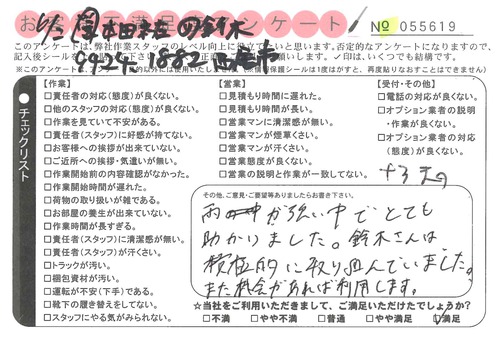 お客様不満足度アンケート
№ 055619
このアンケートは、弊社作業スタッフのレベル向上に役立てたいと思います。否定的なアンケートになりますので、
✓印は、いくつでも結構です。
【作業】
□責任者の対応(態度)が良くない。
□他のスタッフの対応(態度)が良くない。
□作業を見ていて不安がある。
□責任者(スタッフ)に好感が持てない。
□お客様への挨拶が出来ていない。
□ご近所への挨拶・気遣いが無い。
□作業開始前の内容確認がなかった。
□作業開始時間が遅れた。
□荷物の取り扱いが雑である。
□お部屋の養生が出来ていない。
□作業時間が長すぎる。
□責任者(スタッフ)に清潔感が無い。
□責任者(スタッフ)が汗くさい。
□トラックが汚い。
□梱包資材が汚い。
□運転が不安(下手)である。
□靴下の履き替えをしてない。
□スタッフにやる気がみられない。
【営業】
□見積もり時間に遅れた。
□見積もり時間が長い。
□営業マンに清潔感が無い。
□営業マンが煙草くさい。
□営業マンが汗くさい。
□営業態度が良くない。
□営業の説明と作業が一致してない。
【受付・その他】
□電話の対応が良くない。
□オプション業者の説明
・作業が良くない。
□オプション業者の対応
(態度)が良くない。
チェックリスト
その他、ご意見・ご要望等ありましたらお書き下さい。
雨が強い中でとても
助かりました。鈴木さんは
積極的に取り組んでいました。
また機会があれば利用します。
☆当社をご利用いただきまして、ご満足いただけたでしょうか?
□不満 □やや不満 □普通 □やや満足 ☑満足